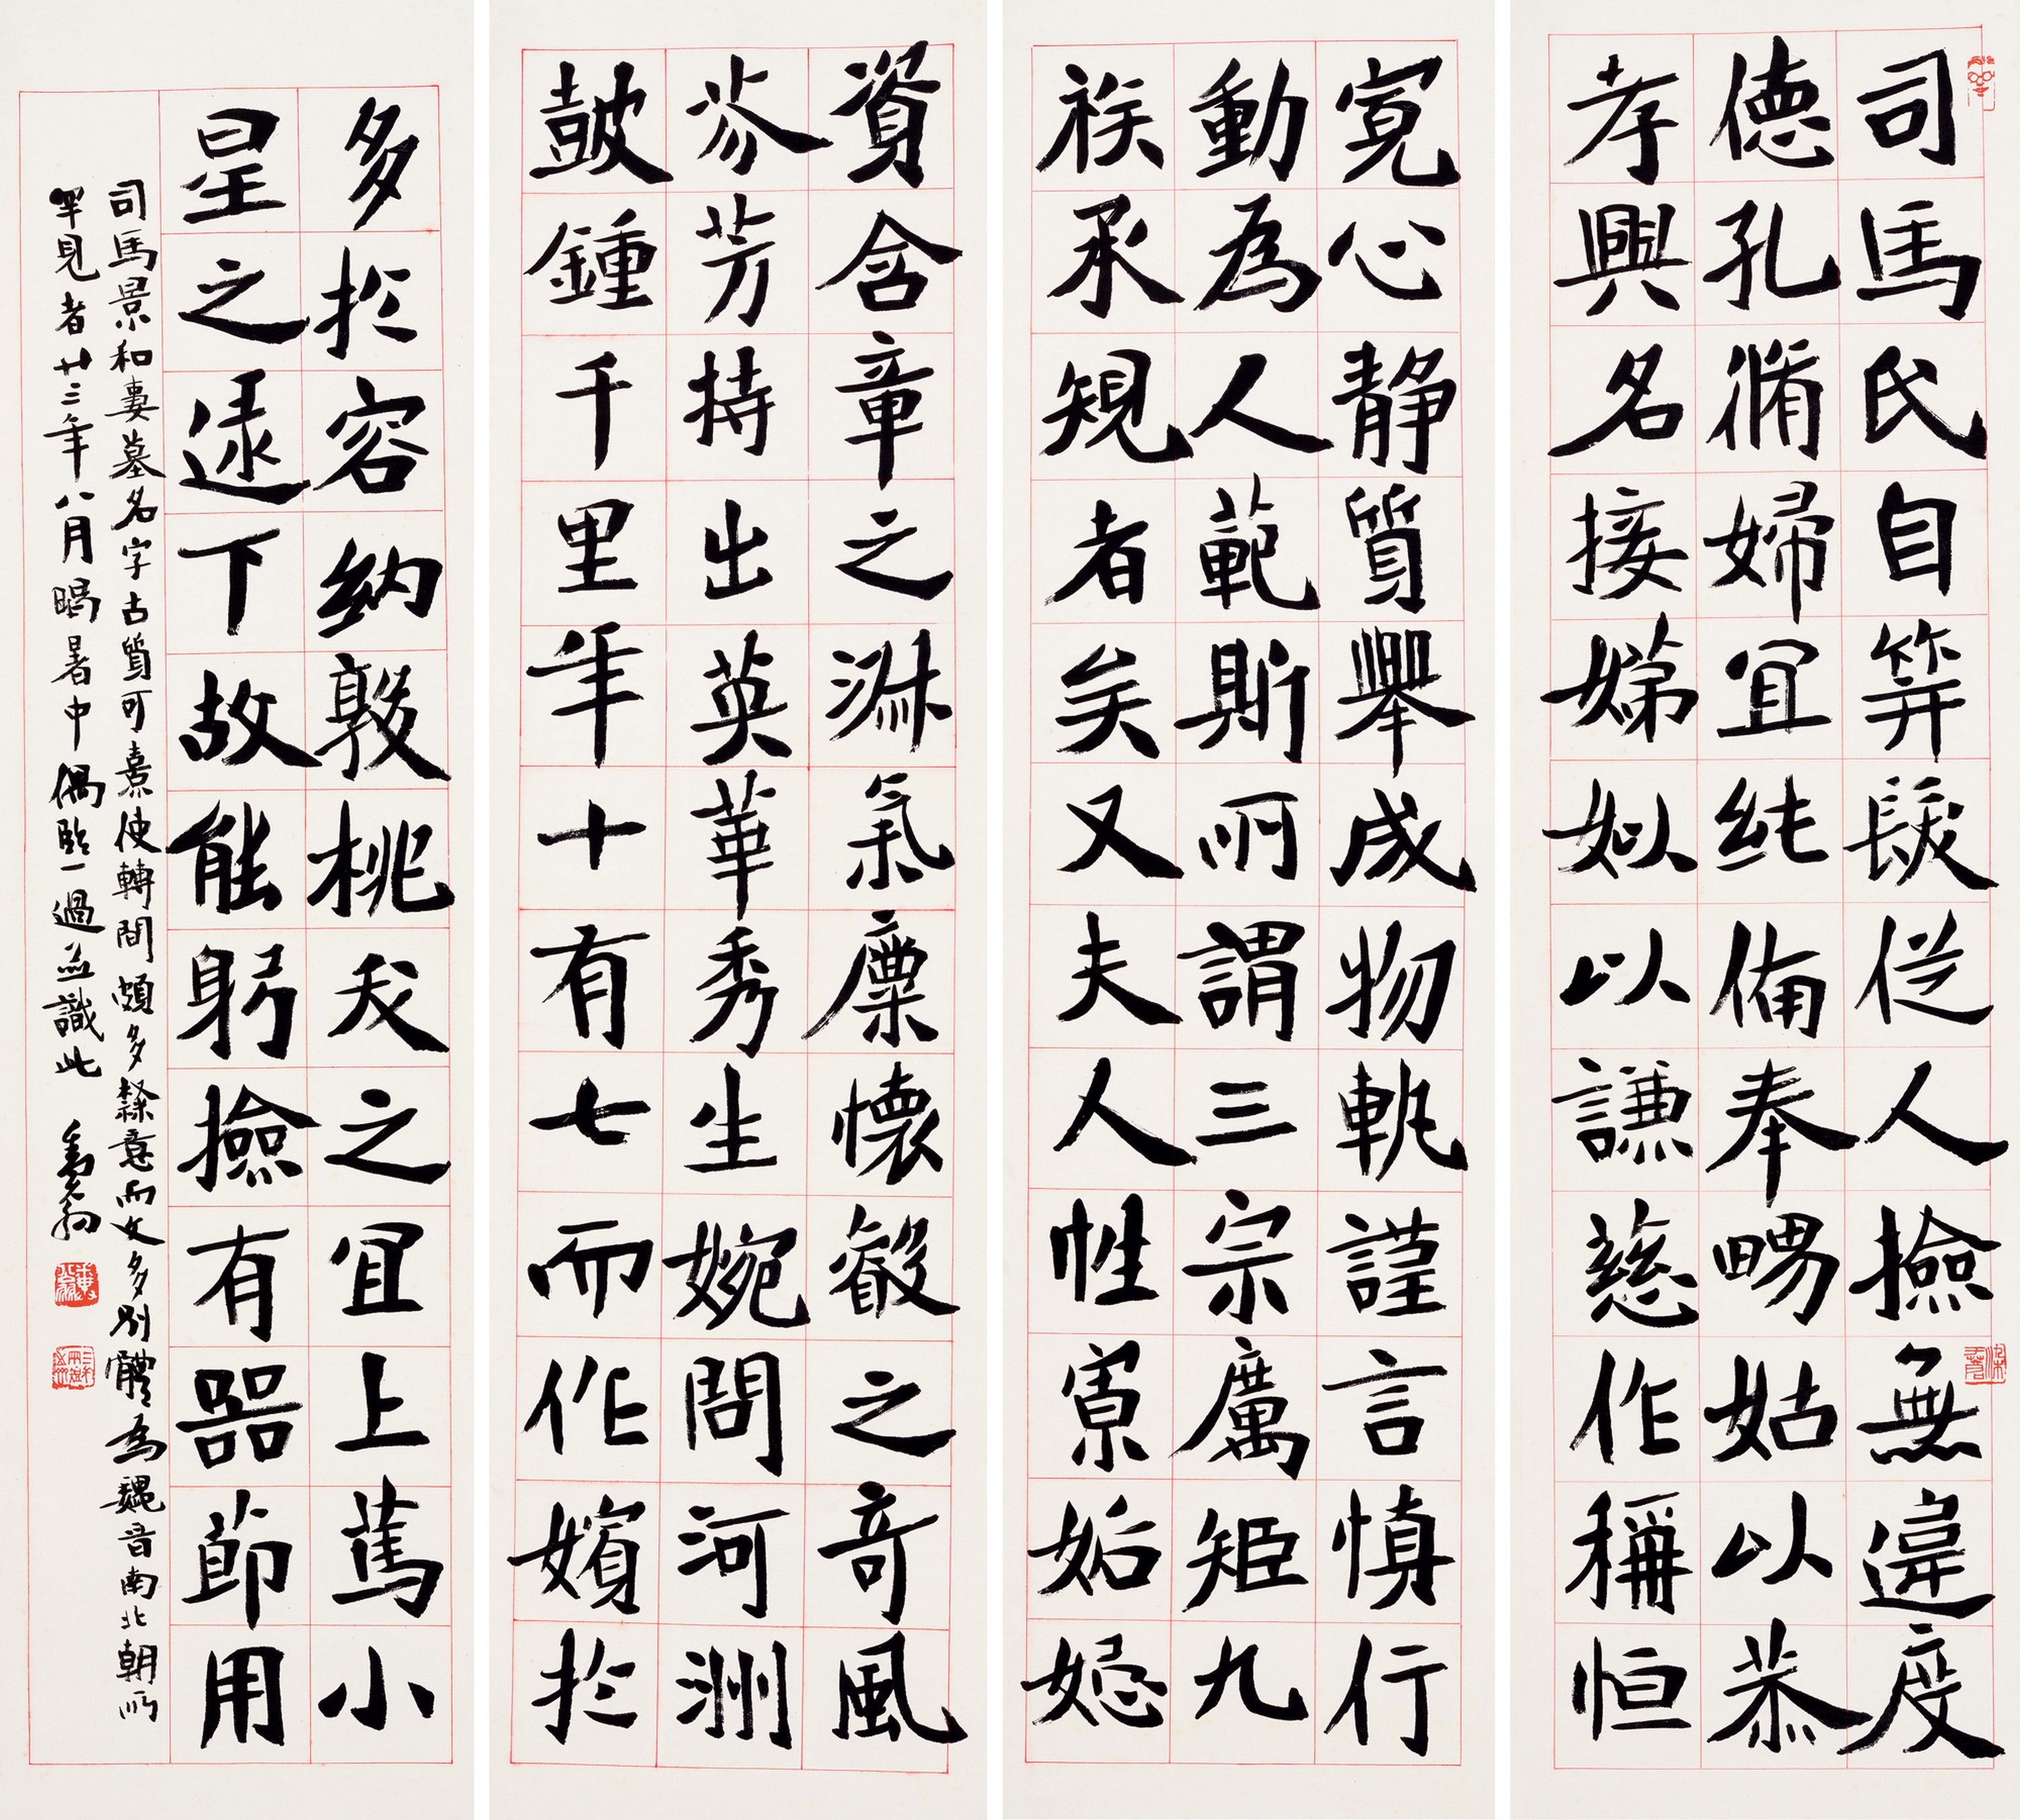 司馬氏自笄髮從人撿無違度
德孔脩婦宜純備奉嘒姑以恭
孝興名接娣姒以謙慈作稱恒
寬心静質舉成物軌謹言慎行
動為人範斯所謂三宗厲矩九
族承規者矣又夫人性寡妬忌
資含章之淋氣廩懷叡之奇風
芬芳持出英華秀生婉問河洲
鼓鍾千里年十有七而作嬪扵
多扵容納敦桃夭之宜上篤小
星之遠下故能躬撿有器節用
司馬景和妻墓名字古質可憙使轉間頗多隸意而文多別體為魏晋南北朝所
罕見者廿三年八月暍暑中偶臨一過並識此